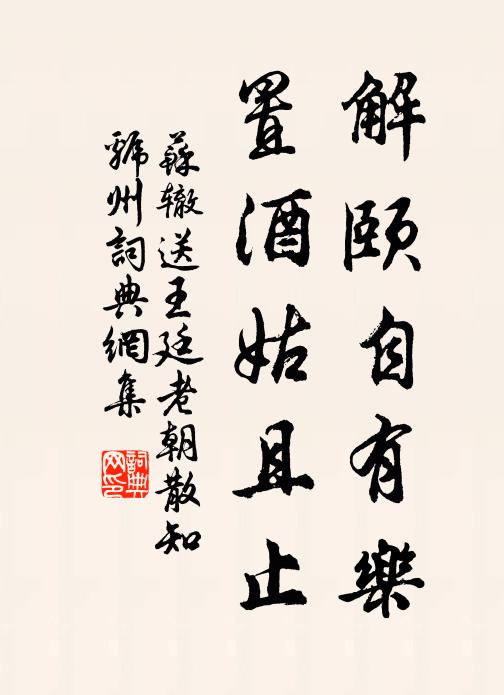 解頤自有樂
置酒姑且止
蘇轍送王廷老朝散知
虢州詞典網集
詞典
网印